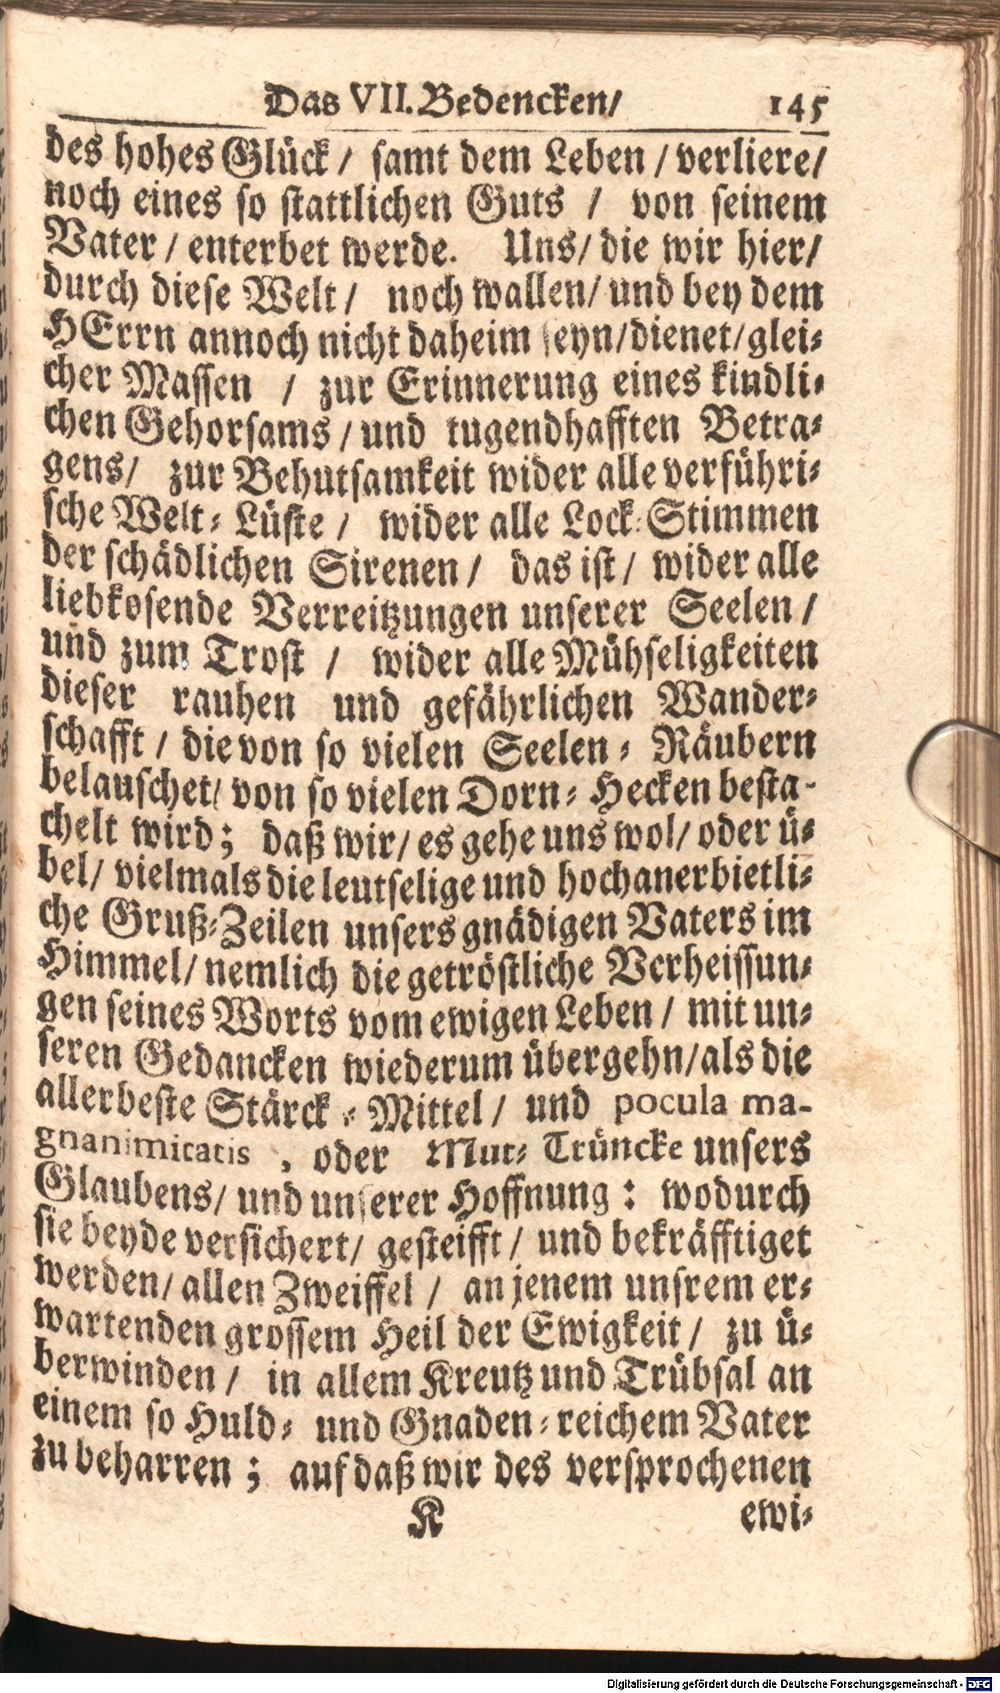 Das VII. Bedencken/ 145
des hohes Glück / samt dem Leben / verliere/
noch eines so stattlichen Guts / von seinem
Vater / enterbet werde. Uns/ die wir hier/
durch diese Welt / noch wallen/ und bey dem
HErrn annoch nicht daheim seyn/dienet/glei-
cher Massen / zur Erinnerung eines kindli-
chen Gehorsams / und tugendhafften Betra-
gens/ zur Behutsamkeit wider alle verführi-
sche Welt-Lüste / wider alle Lock-Stimmen
der schädlichen Sirenen / das ist / wider alle
liebkosende Verreitzungen unserer Seelen /
und zum Trost / wider alle Mühseligkeiten
dieser rauhen und gefährlichen Wander-
schafft / die von so vielen Seelen-Räubern
belauschet/ von so vielen Dorn-Hecken besta-
chelt wird; daß wir/ es gehe uns wol/ oder ü-
bel/ vielmals die leutselige und hochanerbietli-
che Gruß-Zeilen unsers gnädigen Vaters im
Himmel/ nemlich die getröstliche Verheissun-
gen seines Worts vom ewigen Leben / mit un-
seren Gedancken wiederum übergehn/als die
allerbeste Stärck-Mittel/ und pocula ma-
gnanimitatis, oder Mut-Trüncke unsers
Glaubens/ und unserer Hoffnung: wodurch
sie beyde versichert/ gesteifft/ und bekräfftiget
werden/ allen Zweiffel / an jenem unsrem er-
wartenden grossem Heil der Ewigkeit/ zu ü-
berwinden / in allem Kreutz und Trübsal an
einem so Huld- und Gnaden-reichem Vater
zu beharren; auf daß wir des versprochenen
K ewi-
Digitalisierung gefördert durch die Deutsche Forschungsgemeinschaft - DFG